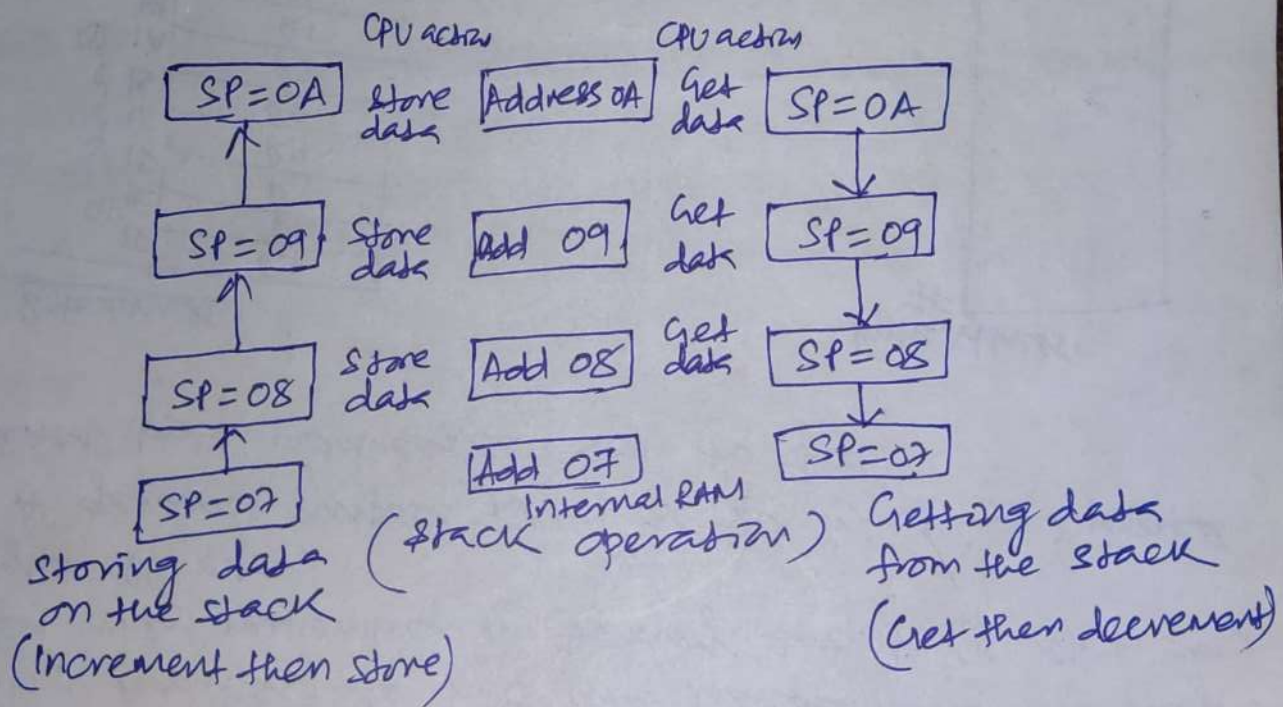 CPU action CPU action
SP=0A Store data Address 0A Get data SP=0A
SP=09 Store data Add 09 Get data SP=09
SP=08 Store data Add 08 Get data SP=08
SP=07 Add 07 SP=07
Internal RAM
(Stack operation)
Storing data
on the stack
(Increment then store)
Getting data
from the stack
(Get then decrement)